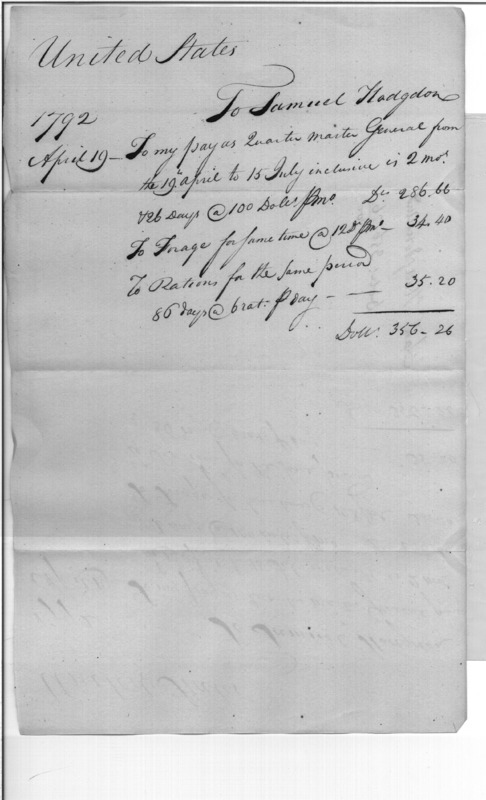 United States
To Samuel Hodgdon
1792
April 19 – To my pay as Quarter Master General from
the 19th april to 15 July inclusive is 2 mos.
& 26 Days @ 100 Dols. ⅌ Mo. Drs 286.66
To Forage for same time @ 12 Ds ⅌ Mo – 34.40
To Rations for the same period
86 days @ 6 rat. ⅌ day – — 35.20
Dolls. 356-26